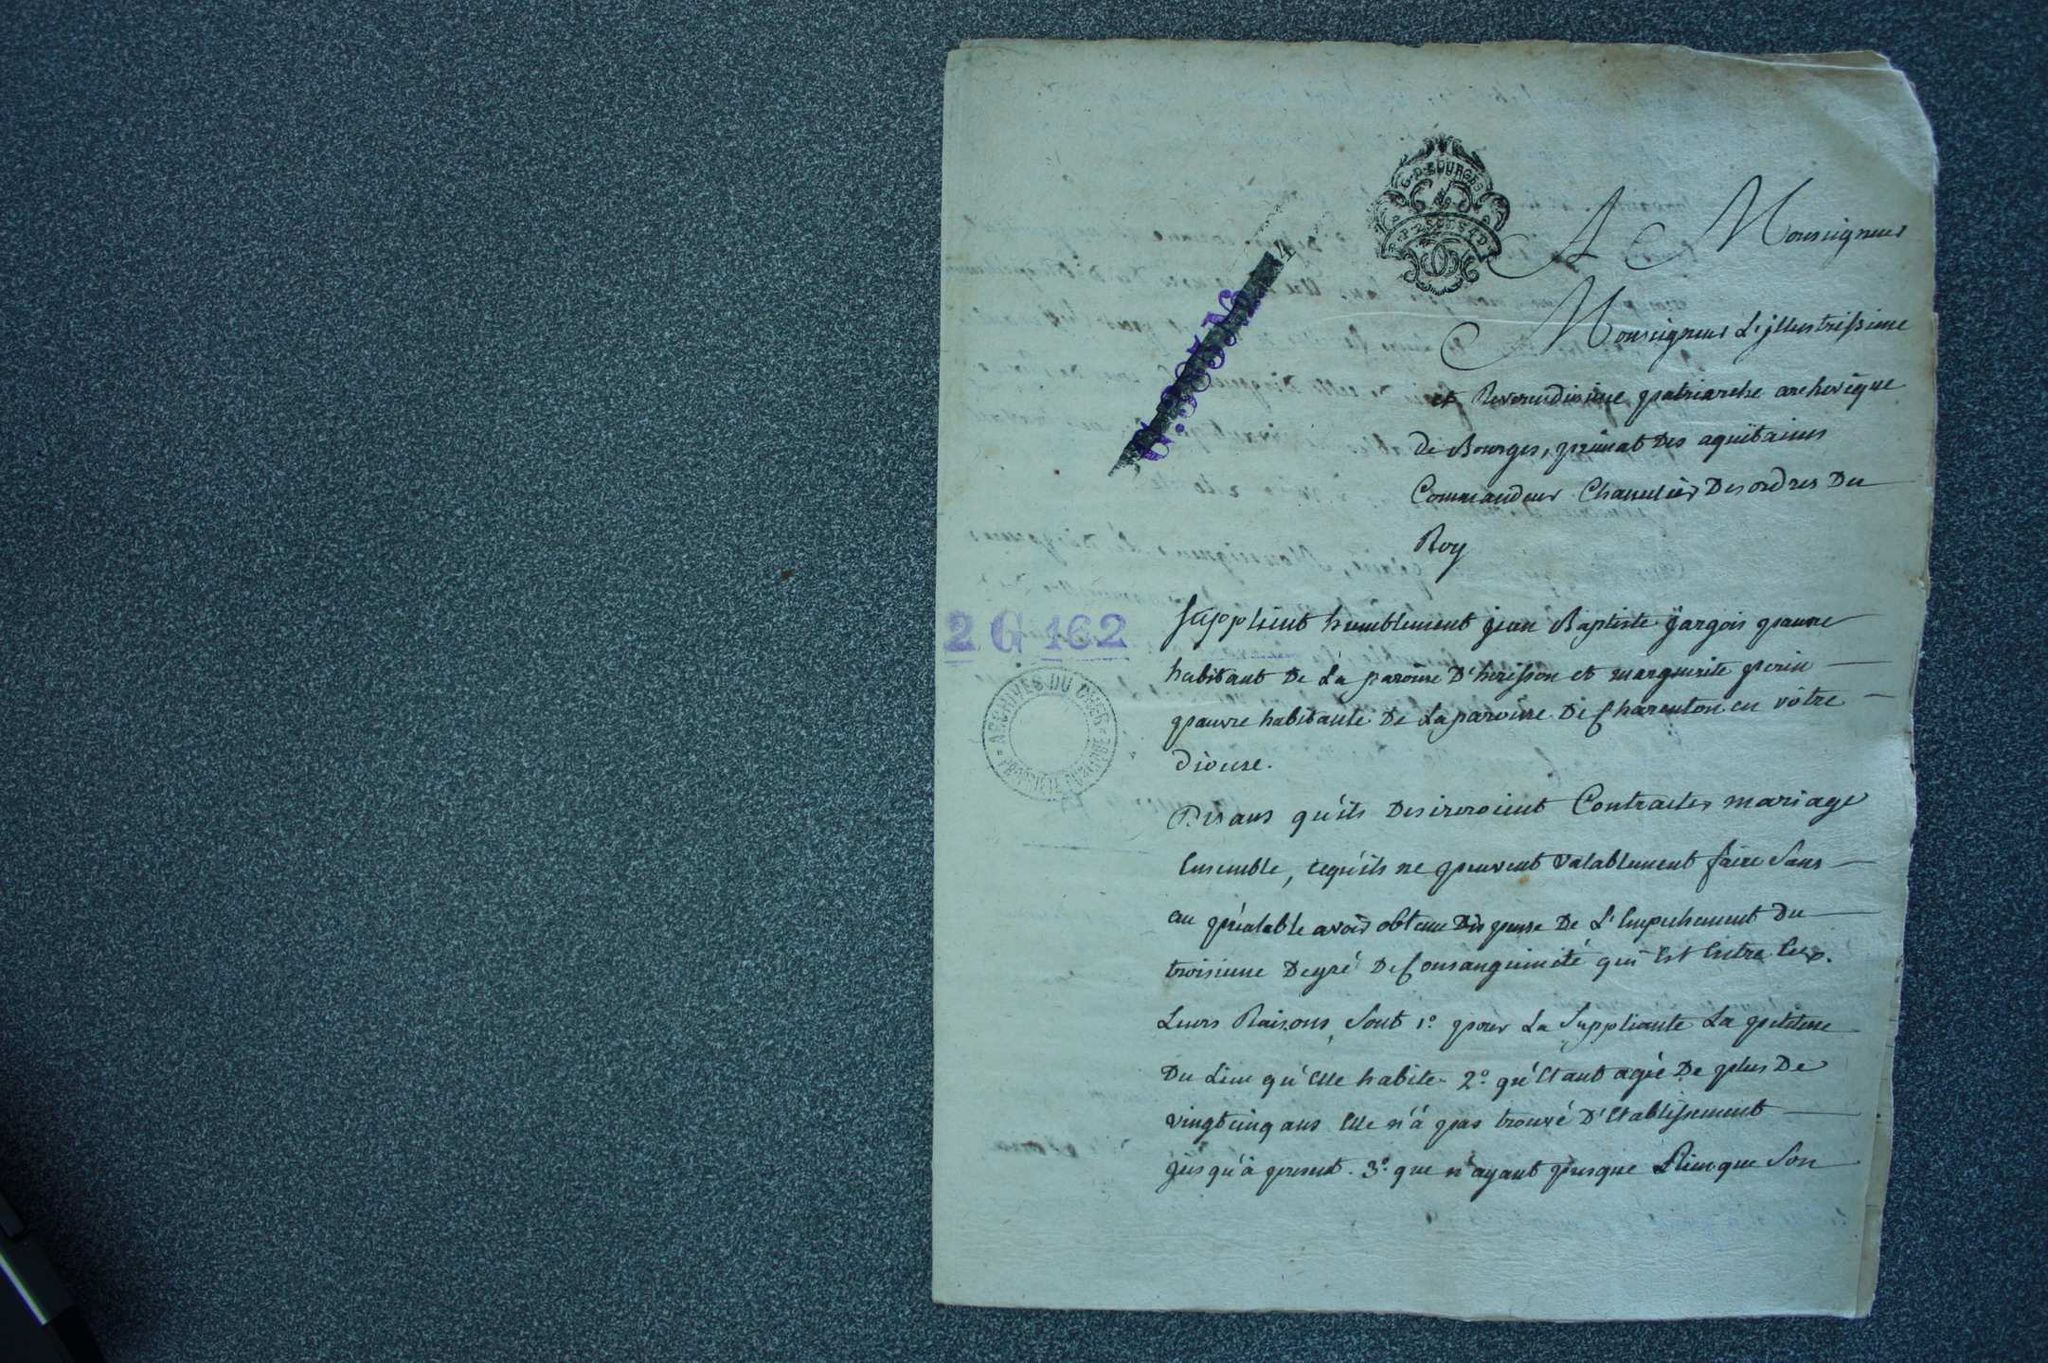 G. P. BOURGES
A Monseigneur
Monseigneur L'jllustrissime
et Reverendissime patriarche archevêque
de Bourges, primat Des aquitaines
Commandeur Chancelier Des ordres Du
Roy
Supplient humblement jean Baptiste jargois pauvre
habitant De La paroisse D'herisson et marguerite perin
pauvre habitante De La paroisse De Charenton en vôtre
diocese.
Disans qu'ils Desireroient Contracter mariage
Ensemble, cequ'ils ne peuvent valablement faire Sans
au préalable avoir obtenu Dispense De L'Empechement Du
troisieme Degré De Consanguinité qui Est Entre Eux.
Leurs Raisons Sont 1.° pour La Suppliante La petitesse
Du Lieu qu'Elle habite. 2.° qu'Etant agée De plus De
vingtcinq ans Elle n'à pas trouvé D'Etablissement
jusqu'à present. 3.° que n'ayant presque Rien que Son
2 G 162
ARCHIVES DU CHER
PROPRIÉTÉ PUBLIQUE